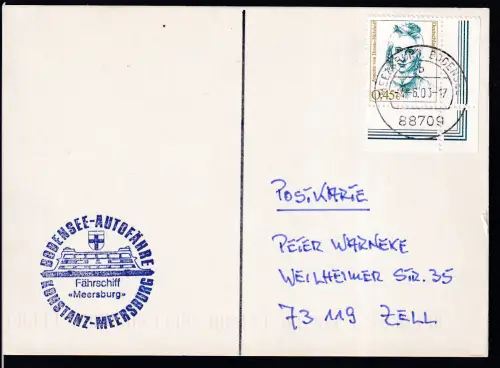 0,45€
MEERSBURG, BODENSEE
b
-6.03-17
88709
POSTKARTE
PETER WARNEKE
WEILHEIMER STR. 35
73119 ZELL
BODENSEE-AUTOFÄHRE
Fährschiff
«Meersburg»
KONSTANZ-MEERSBURG